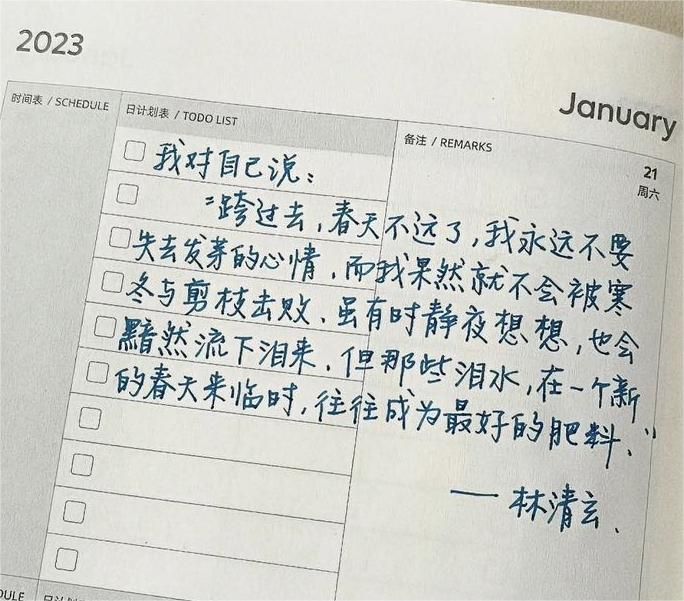 2023
January
时间表 / SCHEDULE
日计划表 / TODO LIST
备注 / REMARKS
21
周六
我对自己说：
“跨过去，春天不远了，我永远不要
失去发芽的心情，而我果然就不会被寒
冬与剪枝击败、虽有时静夜想想，也会
黯然流下泪来、但那些泪水，在一个新
的春天来临时，往往成为最好的肥料、”
——林清玄、
日计划